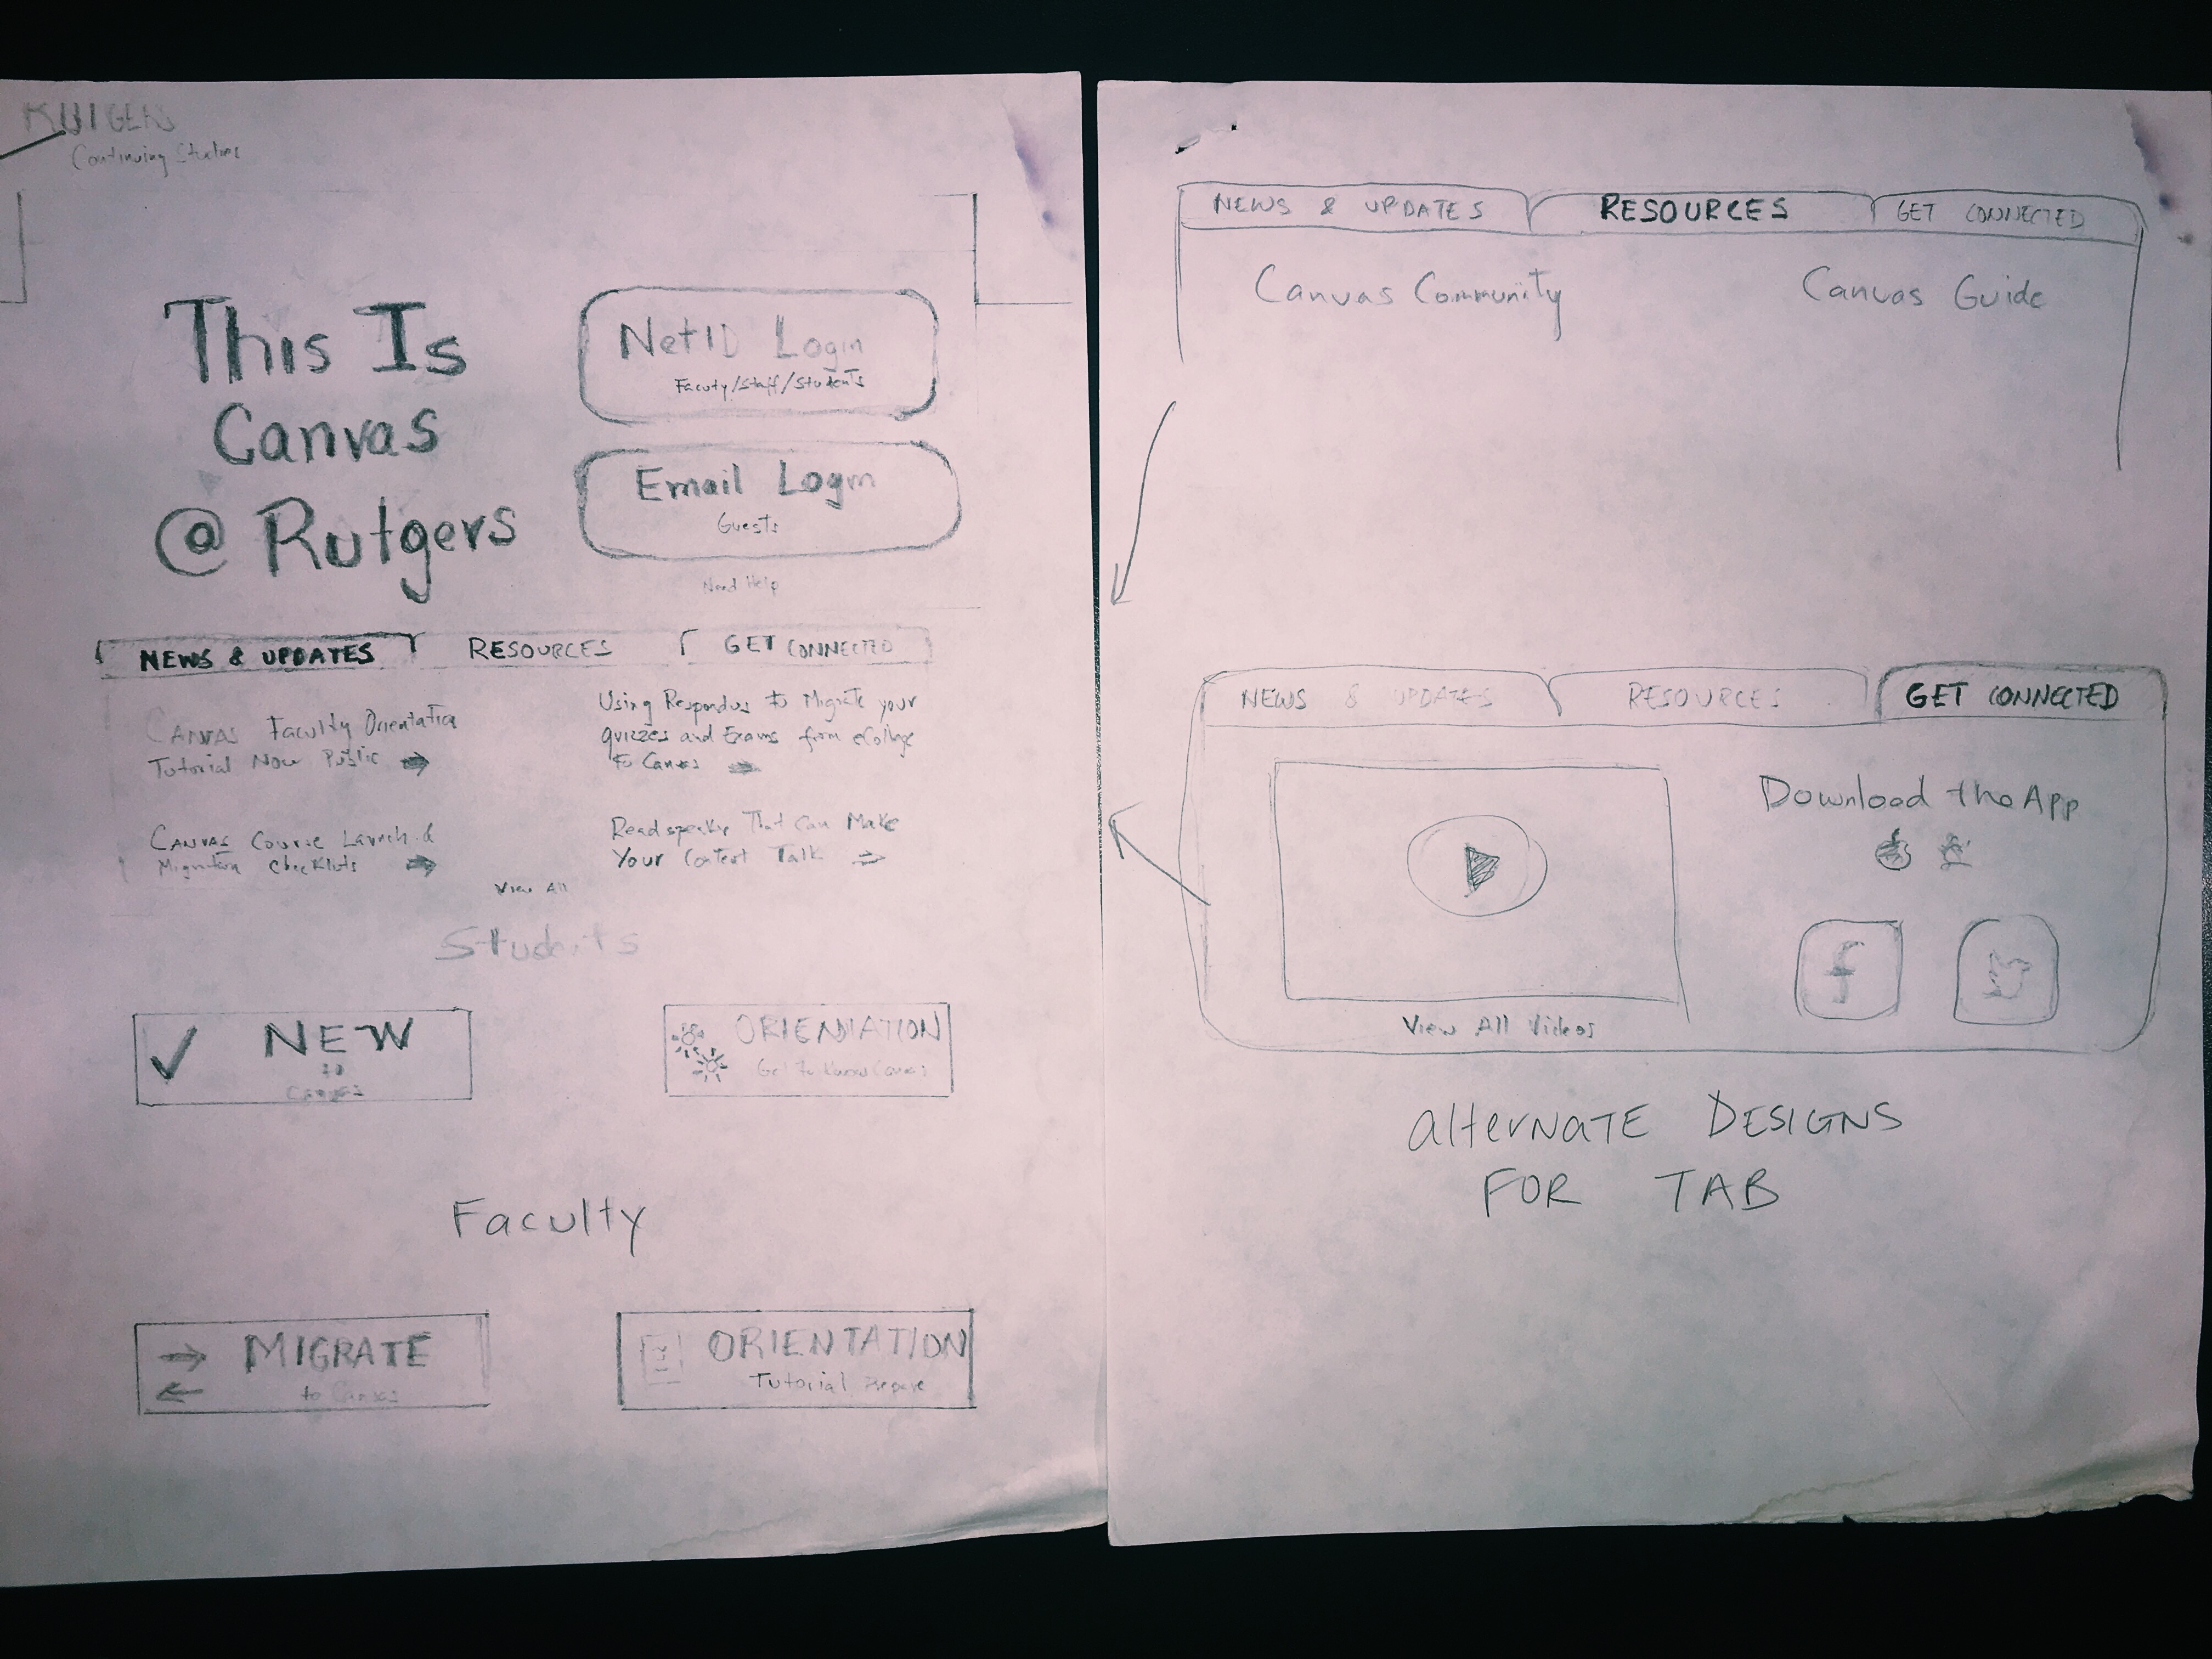 RUTGERS
Continuing Studies
This Is
Canvas
@ Rutgers
NetID Login
Facuty/Staff/Students
Email Login
Guests
Need Help
NEWS & UPDATES
RESOURCES
GET CONNECTED
CANVAS Faculty Orientation
Tutorial Now Public
Using Respondus to Migrate your
quizzes and Exams from eCollege
to Canvas
CANVAS Course Launch &
Migration Checklists
Readspeaker That Can Make
Your Content Talk
View All
Students
NEW
to
Canvas
ORIENTATION
Get to Know Canvas
Faculty
MIGRATE
to Canvas
ORIENTATION
Tutorial
NEWS & UPDATES
RESOURCES
GET CONNECTED
Canvas Community
Canvas Guide
NEWS & UPDATES
RESOURCES
GET CONNECTED
Download the App
f
View All Videos
alterNaTE DESIGNS
FOR TAB